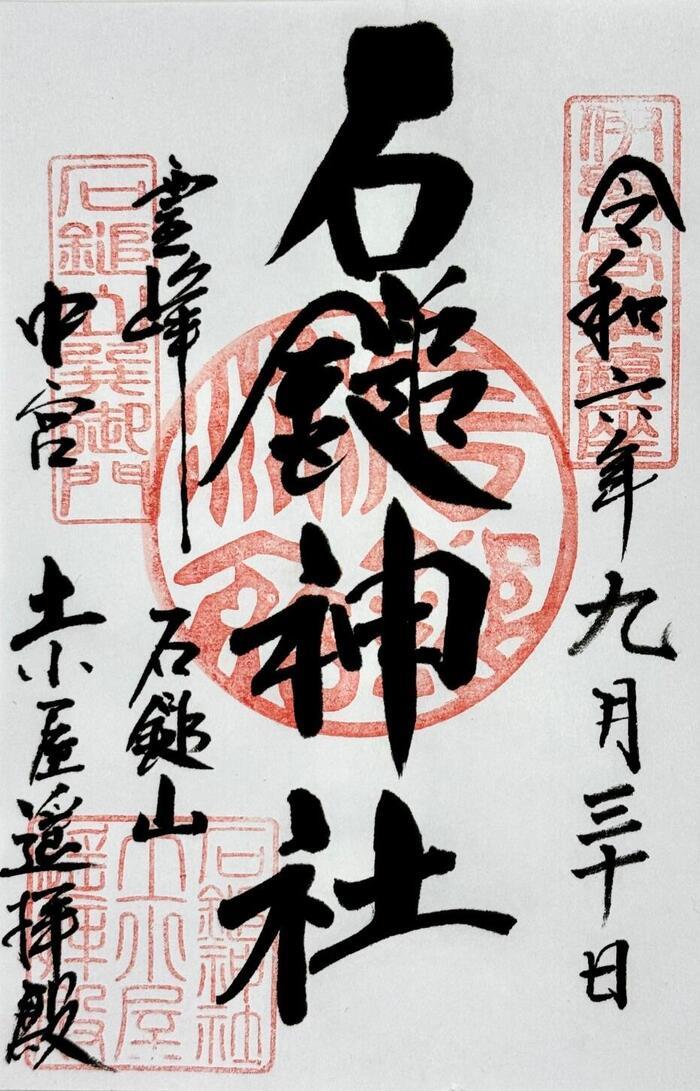 令和六年九月三十日
石鎚神社
霊峰 石鎚山
中宮 土小屋遥拝殿
石鎚山巽御門
石鎚神社
土小屋
遥拝殿